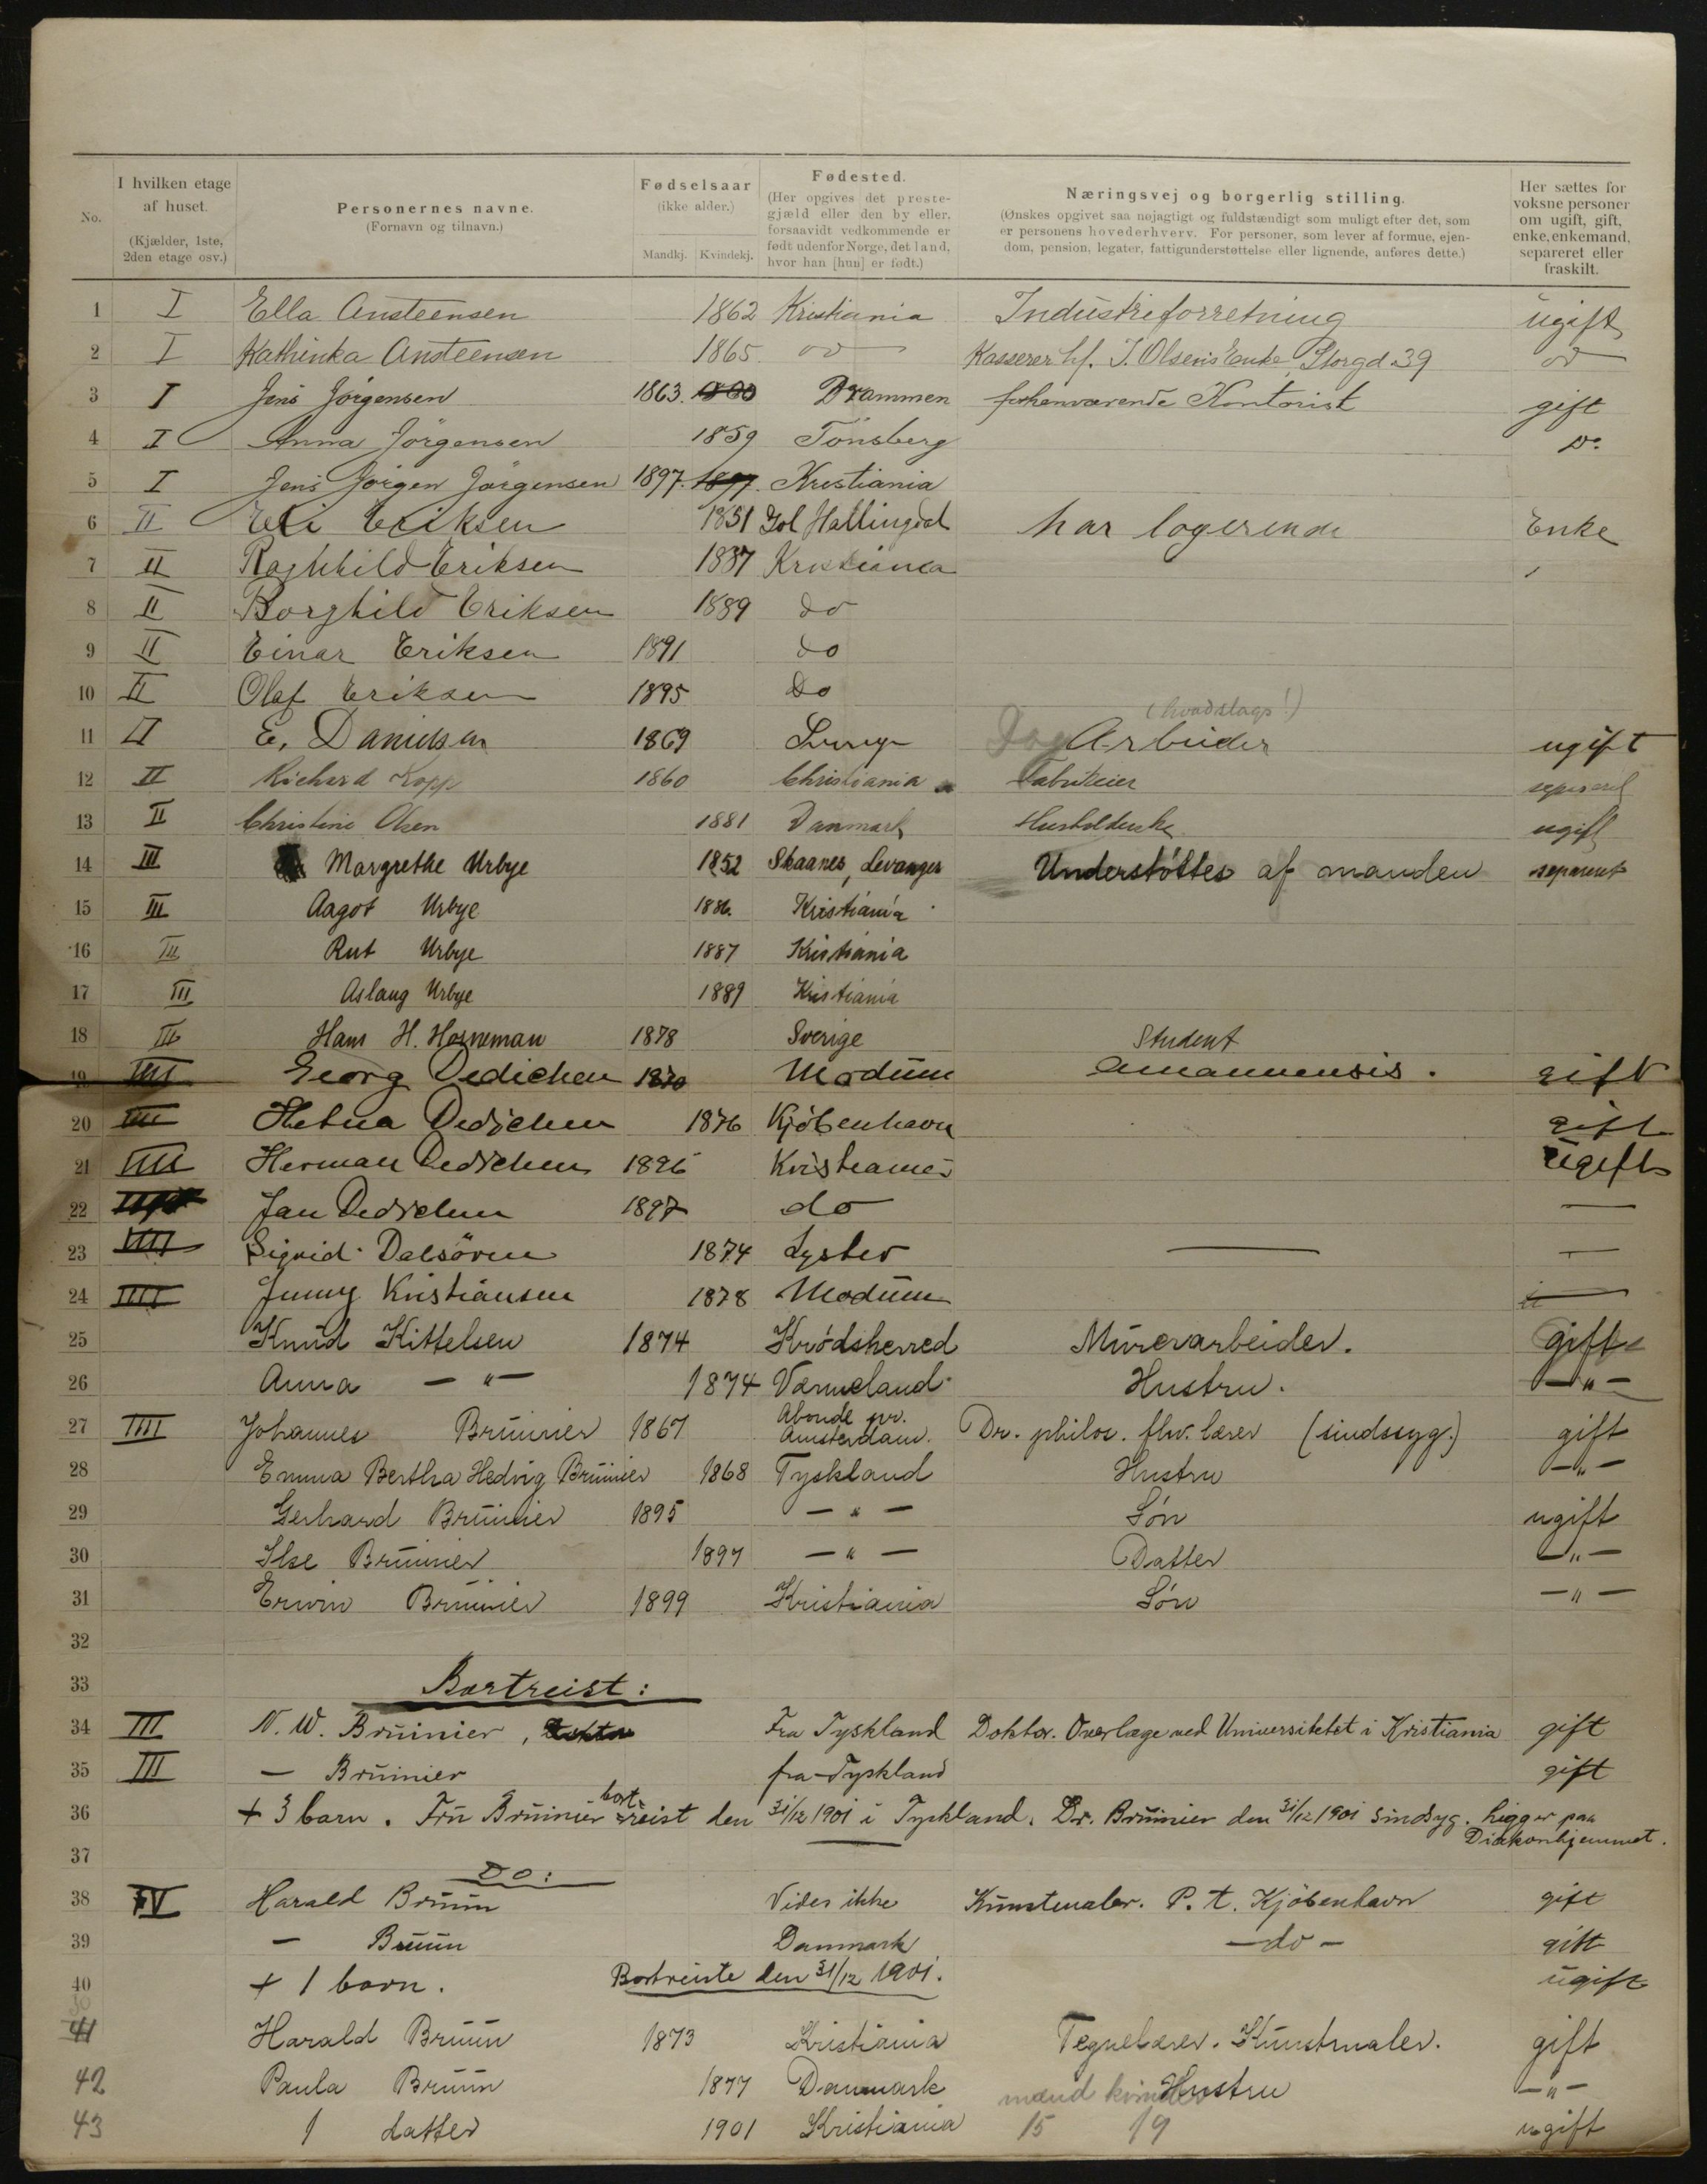 No. I hvilken etage af huset. (Kjælder, 1ste, 2den etage osv.) Personernes navne. (Fornavn og tilnavn.) Fødselsaar (ikke alder.) Mandkj. Kvindekj. Fødested. (Her opgives det prestegjæld eller den by eller, forsaavidt vedkommende er født udenfor Norge, det land, hvor han [hun] er født.) Næringsvej og borgerlig stilling. (Ønskes opgivet saa nøjagtigt og fuldstændigt som muligt efter det, som er personens hovederhverv. For personer, som lever af formue, ejendom, pension, legater, fattigunderstøttelse eller lignende, anføres dette.) Her sættes for voksne personer om ugift, gift, enke, enkemand, separeret eller fraskilt.
1 I Ella Ansteensen 1862 Kristiania Industriforretning ugift
2 I Kathinka Ansteensen 1865 do Kasserer hf. J. Olsens Enke, Storgd 39 do
3 I Jens Jörgensen 1863. Drammen forhenværende Kontorist gift
4 I Anna Jörgensen 1859 Tönsberg Do.
5 I Jens Jörgen Jörgensen 1897. 1897. Kristiania
6 II Eli Eriksen 1851 Gol Hallingdal har logerende Enke
7 II Raghhild Eriksen 1887 Kristiania
8 II Borghild Eriksen 1889 do
9 II Einar Eriksen 1891 do
10 II Olaf Eriksen 1895 do
(hvadslags!)
11 II E. Danielsen 1869 Sverge Arbeider ugift
12 II Richard Kopp 1860 Christiania Fabrikeier separert
13 II Christine Olsen 1881 Danmark Husholderske ugift
14 III Margrethe Urbye 1852 Skaanes, Levanger Understöttes af manden separert
15 III Aagot Urbye 1886. Kristiania
16 III Rut Urbye 1887 Kristiania
17 III Aslaug Urbye 1889 Kristiania
18 III Hans H. Horneman 1878 Sverige Student
19 IIII Georg Dedichen 1870 Modum amanuensis. gift
20 IIII Dedichen 1876 Kjöbenhavn gift
21 IIII Herman Dedichen 1896 Kristiania ugift
22 Jan Dedichen 1897 do —
23 IIII Sigrid Dalsören 1874 Lyster — —
24 IIII Jenny Kristiansen 1878 Modum —
25 Knud Kittelsen 1874 Krödsherred Murerarbeider. gift
26 Anna — " — 1874 Værmeland Hustru. — " —
27 IIII Johannes Bruinier 1867 Abcoude pr. Amsterdam. Dr. philos. fhv. lærer (sindssyg.) gift
28 Emma Bertha Hedvig Bruinier 1868 Tyskland Hustru — " —
29 Gerhard Bruinier 1895 — " — Sön ugift
30 Ilse Bruinier 1897 — " — Datter — " —
31 Erwin Bruinier 1899 Kristiania Sön — " —
32
33 Bortreist:
34 III N. W. Bruinier, Fra Tyskland Doktor. Overlage ved Universitetet i Kristiania gift
35 III — Bruinier fra Tyskland gift
36 + 3 barn. Fru Bruinier bortreist den 31/12 1901 i Tyskland. Dr. Bruinier den 31/12 1901 sindsyg. Ligger paa Diakonhjemmet.
37 Do:
38 IV Harald Bruun Vides ikke Kunstmaler. P. t. Kjöbenhavn gift
39 — Bruun Danmark — do — gift
40 + 1 barn. Bortreiste den 31/12 1901. ugift
41 Harald Bruun 1873 Kristiania Tegnelærer. Kunstmaler. gift
42 Paula Bruun 1877 Danmark Hustru — " —
mænd kvinder
43 1 datter 1901 Kristiania 15 19 ugift